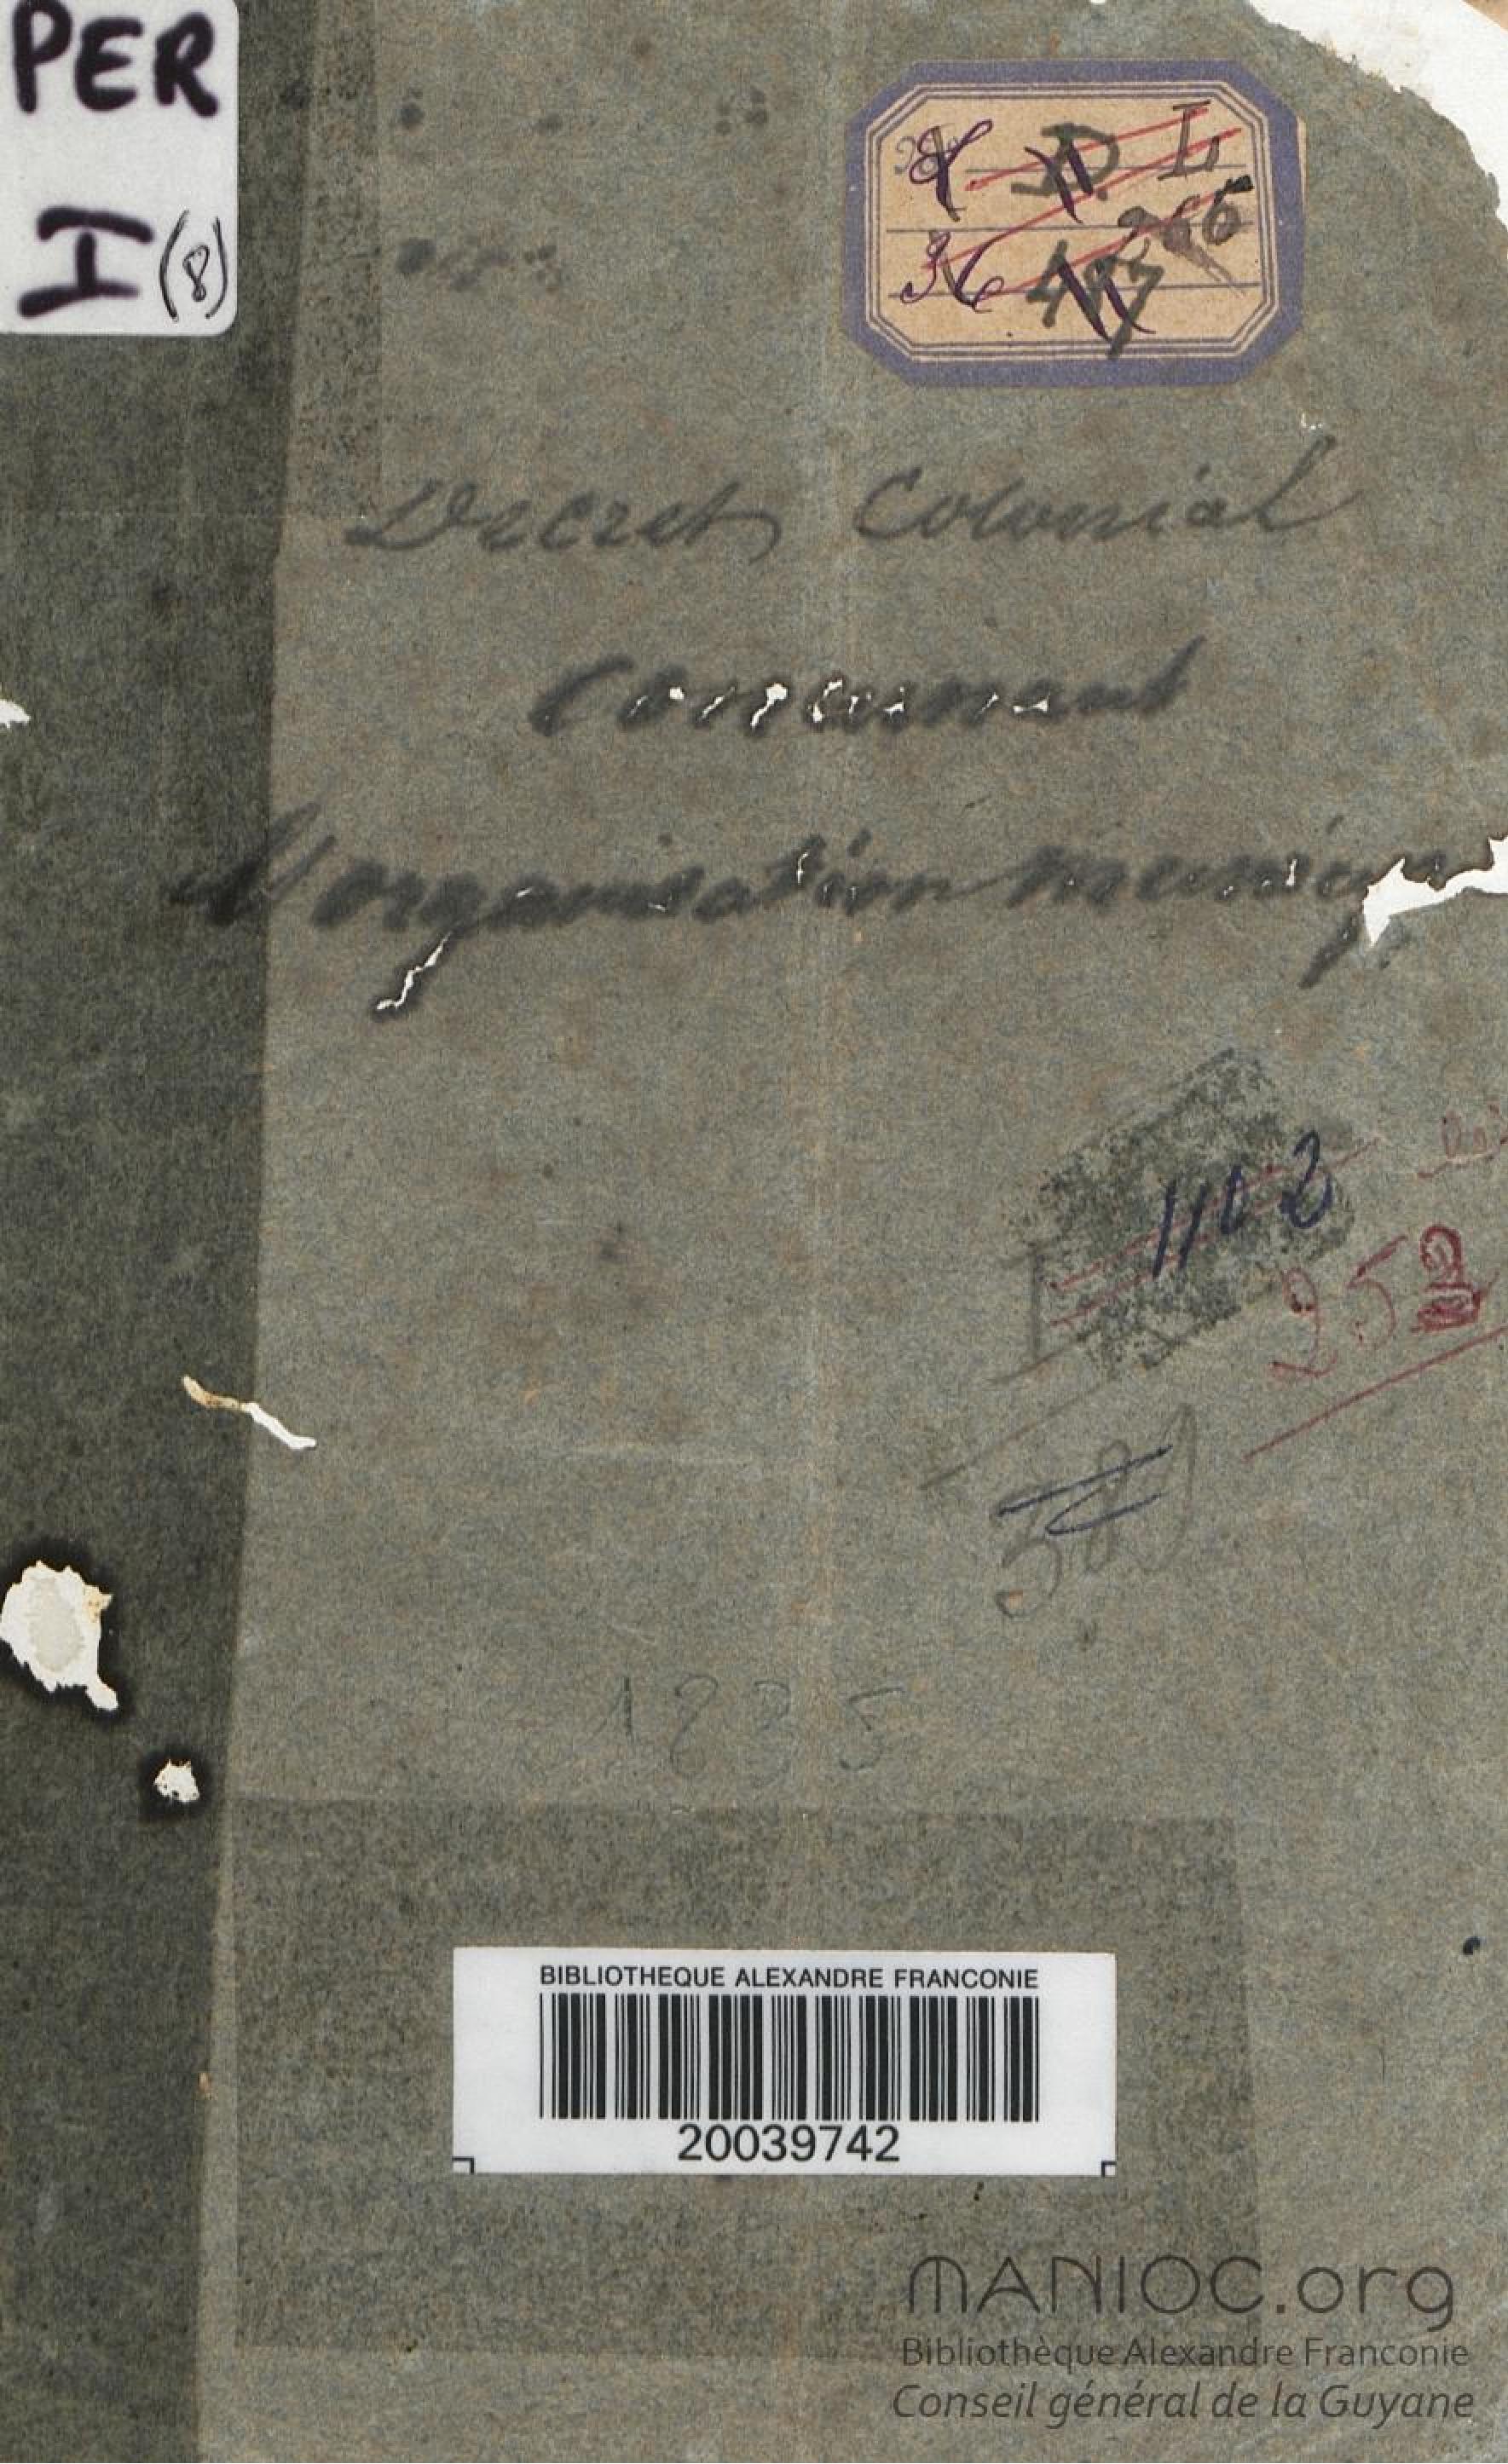 PER
I (8)
D. L
266
36 487
Decret Colonial
concernant
l'organisation
1102
252
1835
BIBLIOTHEQUE ALEXANDRE FRANCONIE
20039742
MANIOC.org
Bibliothèque Alexandre Franconie
Conseil général de la Guyane